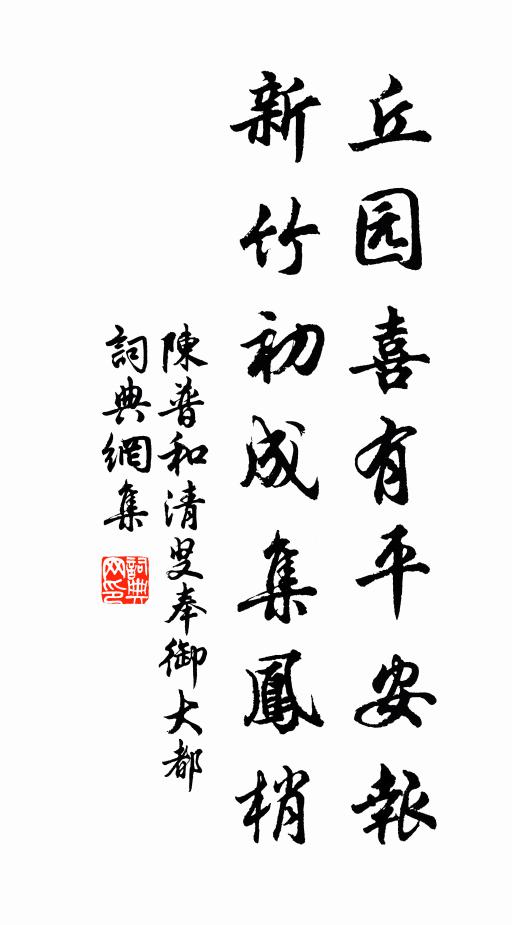 丘园喜有平安報
新竹初成集鳳梢
陳普和清叟奉御大都
詞典網集
詞典网印